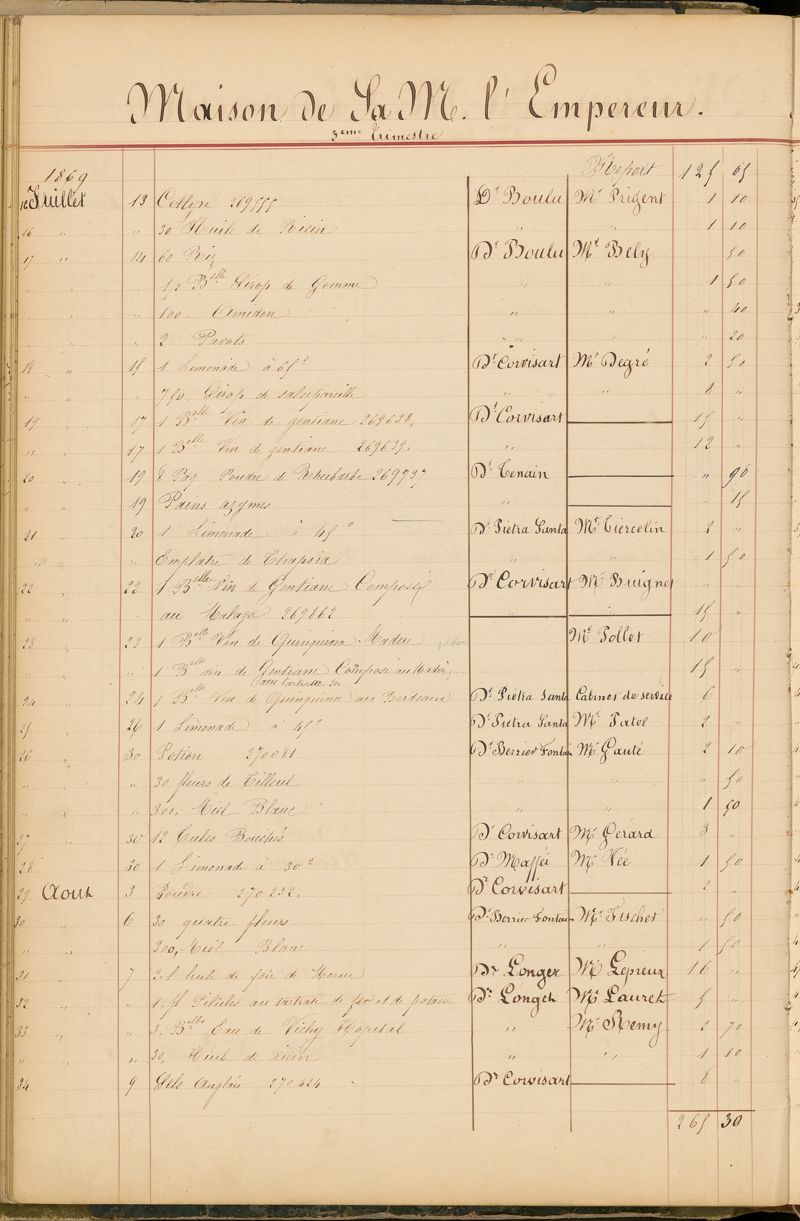 Maison de Sa M. l'Empereur.
3eme trimestre
1869 Report 125 65
Juillet 13 269555 Dr Boulu Mr Prigent 1 10
16 " " 30 Huile de Ricin " " 1 10
17 " 14 60 Riz Dr Boulu Mr Bely 50
" " " 1/2 Blle Sirop de Gomme " " 1 50
" " " 100, Amidon " " " 40
" " " 2 Pavots " " " 20
18 " 15 1 Limonade à 65° Dr Corvisart Mr Degré 2 50
" " " 750, Sirop de salsepareille " " 8 "
19 " 17 1 Blle Vin de gentiane 269638, Dr Corvisart 15 "
" " 17 1 Blle Vin de gentiane 269639, " 12 "
20 " 19 8 Paq Poudre de Rhubarbe 269737 Dr Tenain " 90
" " 19 Pains azymes " " 15
21 20 1 Limonade à 45° Dr Pietra Santa Mr Tiercelin 2 "
" " " Emplatre de Thapsia " " 1 50
22 " 22 1 Blle Vin de Gentiane Composé Dr Corvisart Mr Buignet " "
" " au Malaga 269862 " " 15 "
23 " 23 1 Blle Vin de Quinquina Madère Mr Pollet 10
" " " 1 Blle vin de Gentiane Composé au Madère 15 "
24 " 24 1 Blle Vin de Quinquina au Bordeaux Dr Pietra Santa Cabinet de service 6
25 " 26 1 Limonade à 45° Dr Pietra Santa Mr Patel 2 "
26 " 30 Potion 270081 Dr Berrier Fontain Mr Gauté 2 10
" " " 30 fleurs de Tilleul " " " 50
" " " 300, Miel Blanc " " 1 50
27 " 30 12 Tubes Bouchés Dr Corvisart Mr Gérard 3 "
28 " 30 1 Limonad à 30° Dr Maffei Mr Vée 1 50
29 Aout 3 Poudre 270232. Dr Corvisart 2 "
30 " 6 30 quatre fleurs Dr Berrier Fontain Mr Fischet " 50
" " 300, Miel Blanc " " 1 50
31 " 7 huile de foie de Morue Dr Longer Mr Lepreux 16 "
32 " " 1 au tartrate de fer et de potasse Dr Longet Mr Lauret 5 "
33 " " 3 Blles Eau de Vichy Hopital " Mr Remy 2 70
" " " 30, Huile de ricin " " 1 10
34 9 Sels Anglais 270424 Dr Corvisart 8 "
265 30